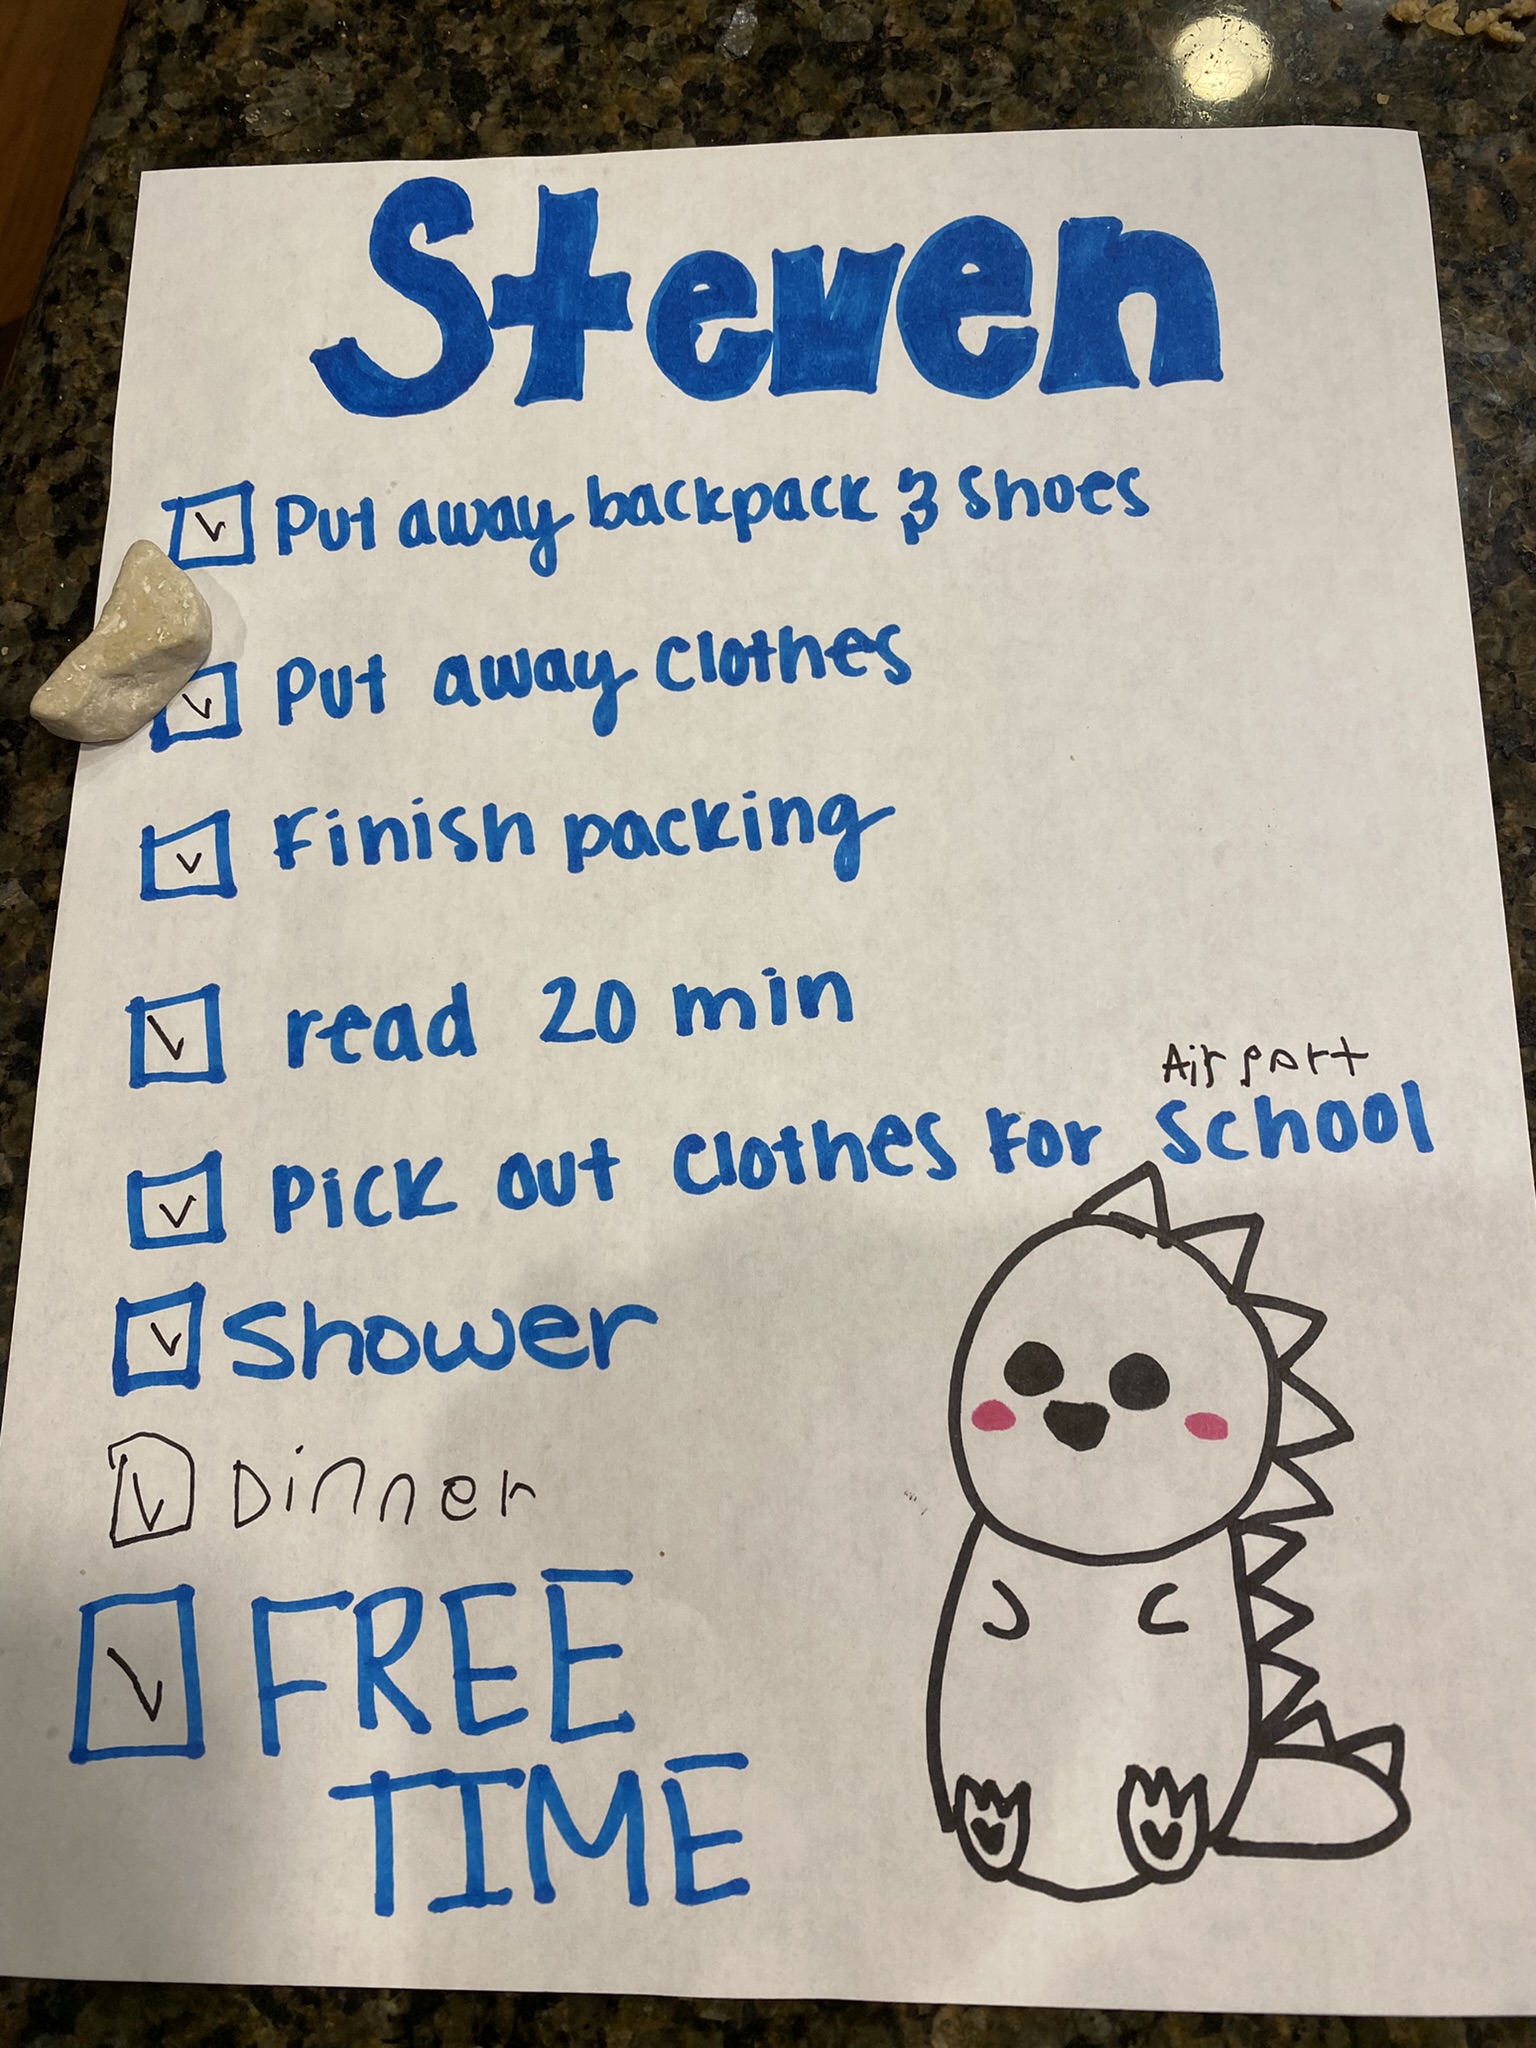 Steven
Put away backpack & shoes
Put away clothes
Finish packing
read 20 min
Airport
Pick out clothes for school
Shower
Dinner
FREE
TIME